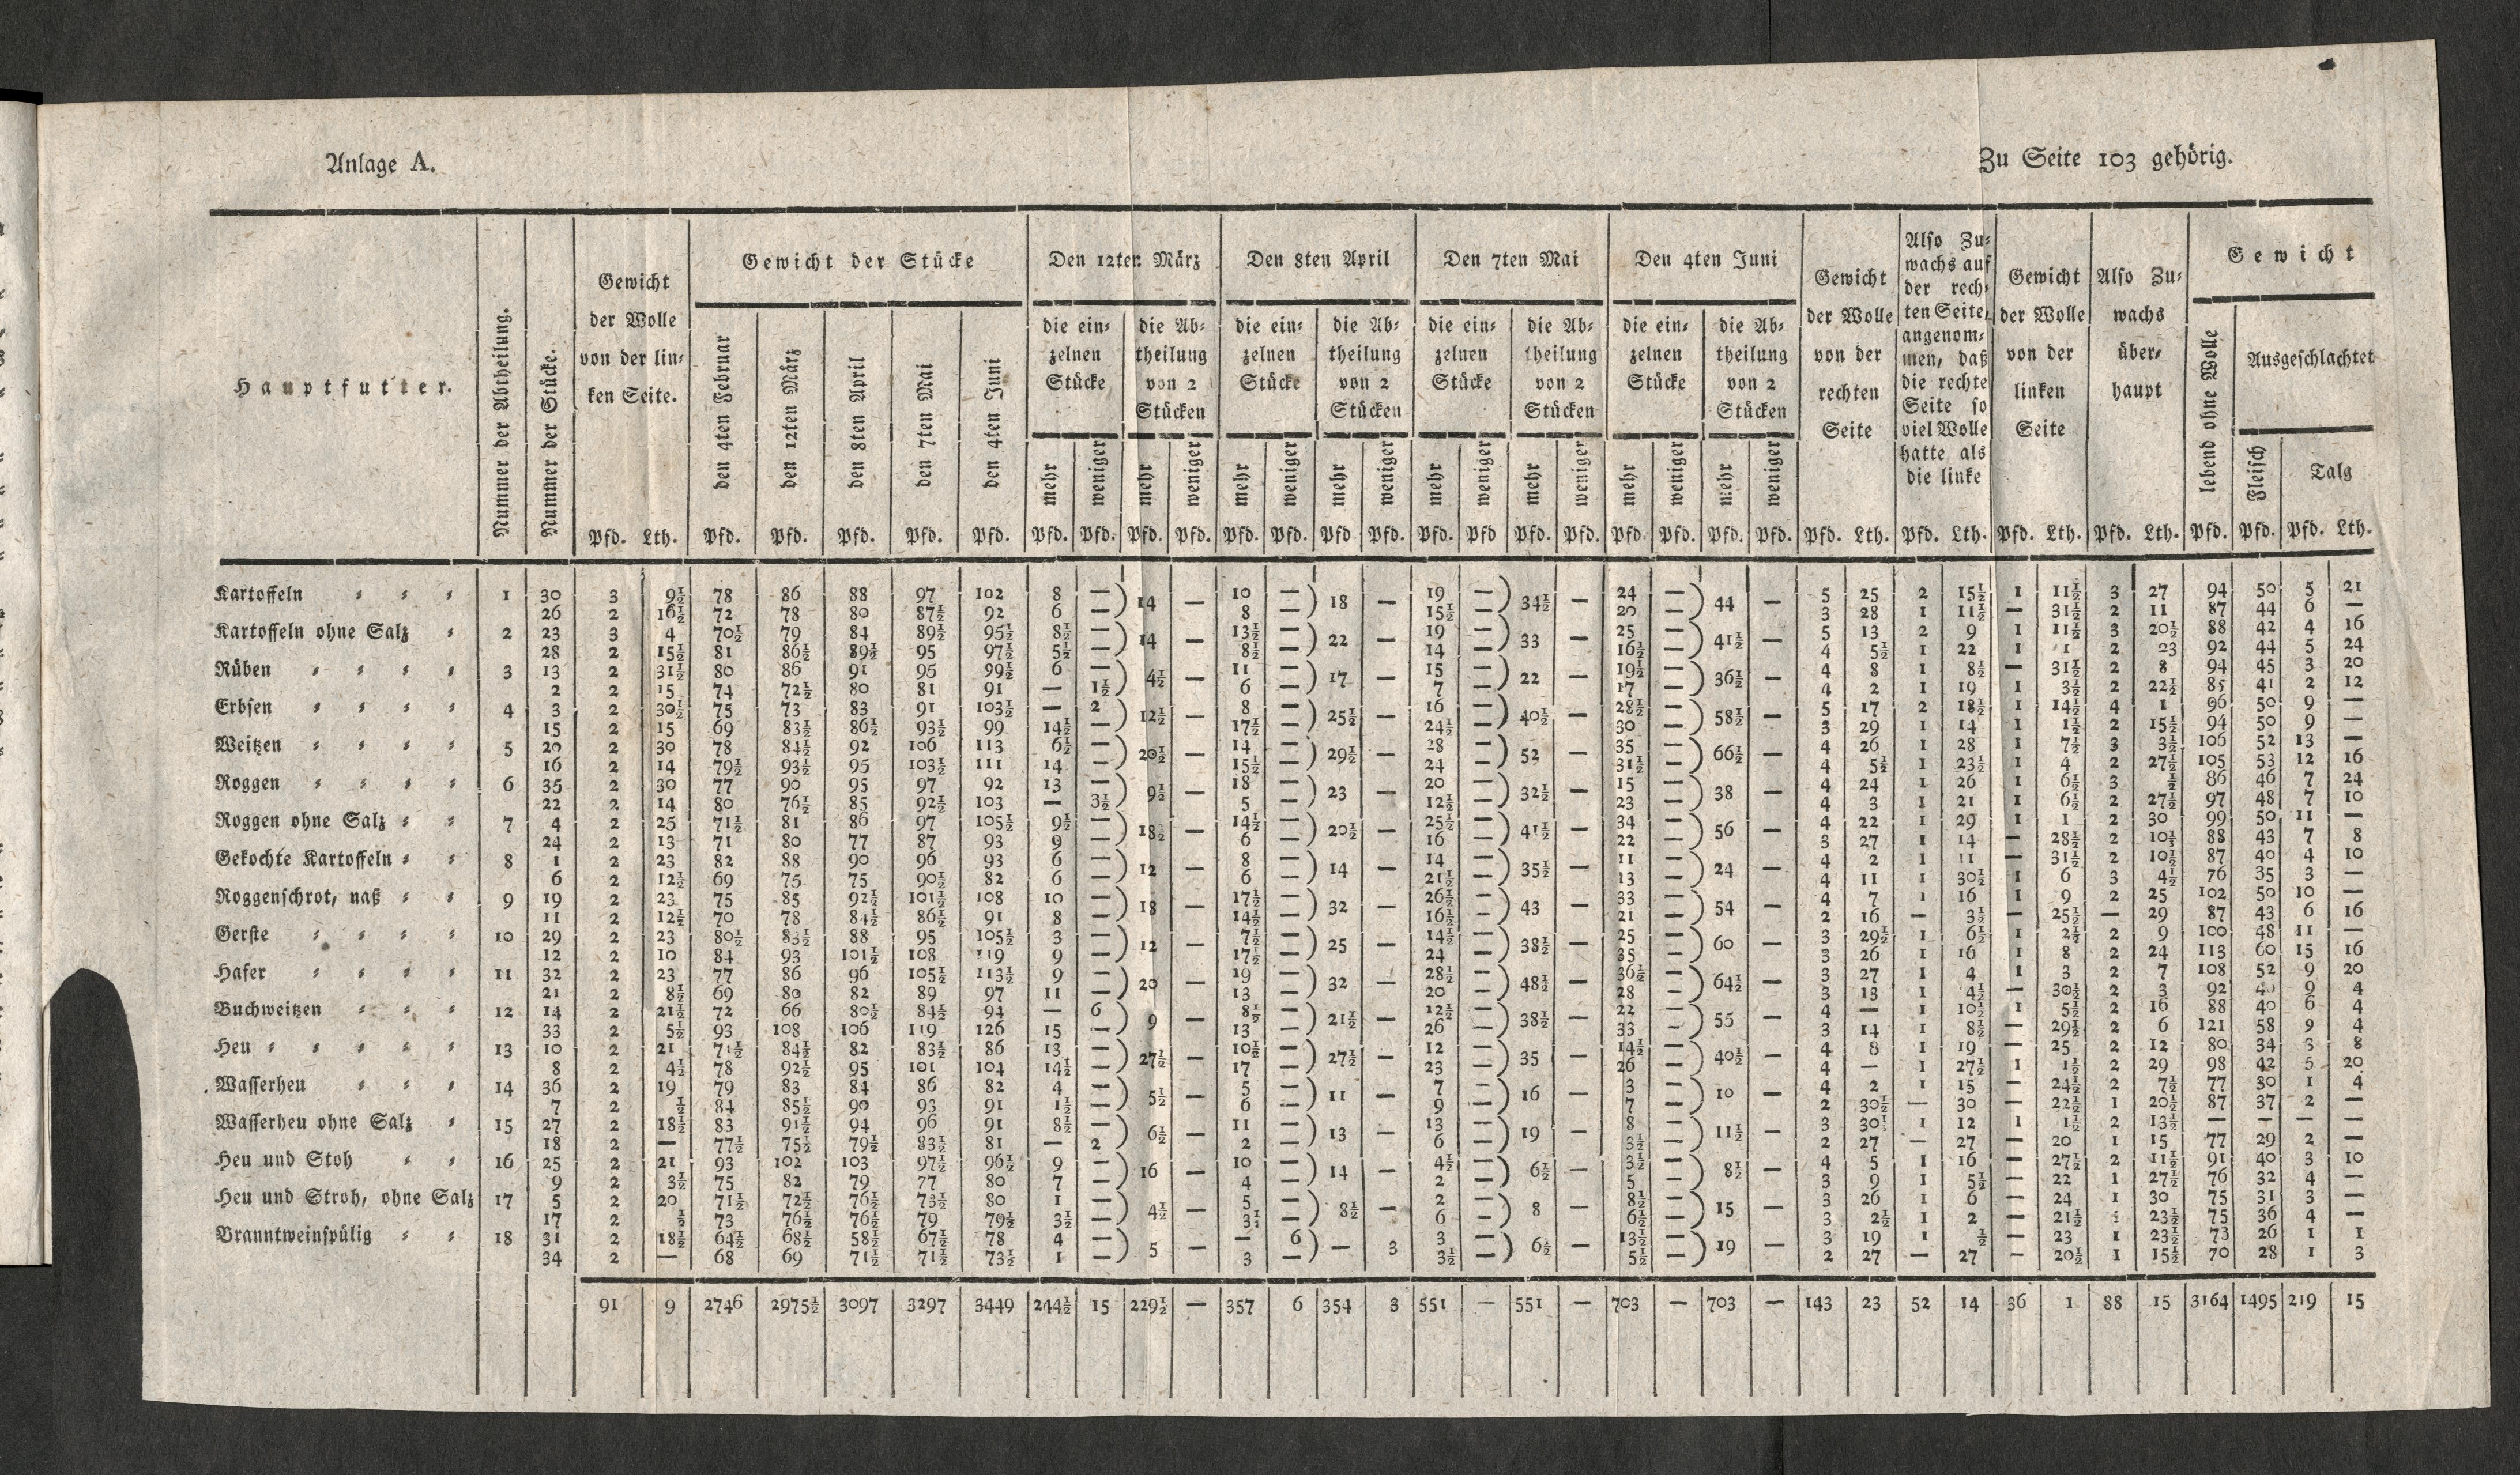 Anlage A.
Zu Seite 103 gehörig.
Hauptfutter.
Nummer der Abtheilung.
Nummer der Stücke.
Gewicht
der Wolle
von der lin-
ken Seite.
Gewicht der Stücke
den 4ten Februar
den 12ten März
den 8ten April
den 7ten Mai
den 4ten Juni
Den 12ten März
Den 8ten April
Den 7ten Mai
Den 4ten Juni
die ein-
zelnen
Stücke
die Ab-
theilung
von 2
Stücken
die ein-
zelnen
Stücke
die Ab-
theilung
von 2
Stücken
die ein-
zelnen
Stücke
die Ab-
theilung
von 2
Stücken
die ein-
zelnen
Stücke
die Ab-
theilung
von 2
Stücken
mehr weniger mehr weniger mehr weniger mehr weniger mehr weniger mehr weniger mehr weniger mehr weniger
Gewicht
der Wolle
von der
rechten
Seite
Also Zu-
wachs auf
der rech-
ten Seite,
angenom-
men, daß
die rechte
Seite so
viel Wolle
hatte als
die linke
Gewicht
der Wolle
von der
linken
Seite
Also Zu-
wachs
über-
haupt
Gewicht
lebend ohne Wolle
Ausgeschlachtet
Fleisch
Talg
Pfd. Lth. Pfd. Pfd. Pfd. Pfd. Pfd. Pfd. Pfd. Pfd. Pfd. Pfd. Pfd. Pfd Pfd. Pfd. Pfd Pfd. Pfd. Pfd Pfd. Pfd. Pfd. Pfd. Lth. Pfd. Lth. Pfd. Lth. Pfd. Lth. Pfd. Pfd. Pfd. Lth.
Kartoffeln 1 30 3 9½ 78 86 88 97 102 8 — 14 — 10 — 18 — 19 — 34½ — 24 — 44 — 5 25 2 15½ 1 11½ 3 27 94 50 5 21
26 2 16½ 72 78 80 87½ 92 6 — 8 — 15½ — 20 — 3 28 1 11½ — 31½ 2 11 87 44 6 —
Kartoffeln ohne Salz 2 23 3 4 70½ 79 84 89½ 95½ 8½ — 14 — 13½ — 22 — 19 — 33 — 25 — 41½ — 5 13 2 9 1 11½ 3 20½ 88 42 4 16
28 2 15½ 81 86½ 89½ 95 97½ 5½ — 8½ — 14 — 16½ — 4 5½ 1 22 1 1 2 23 92 44 5 24
Rüben 3 13 2 31½ 80 86 91 95 99½ 6 — 4½ — 11 — 17 — 15 — 22 — 19½ — 36½ — 4 8 1 8½ — 31½ 2 8 94 45 3 20
2 2 15 74 72½ 80 81 91 — 1½ 6 — 7 — 17 — 4 2 1 19 1 3½ 2 22½ 85 41 2 12
Erbsen 4 3 2 30½ 75 73 83 91 103½ — 2 12½ — 8 — 25½ — 16 — 40½ — 28½ — 58½ — 5 17 2 18½ 1 14½ 4 1 96 50 9 —
15 2 15 69 83½ 86½ 93½ 99 14½ — 17½ — 24½ — 30 — 3 29 1 14 1 1½ 2 15½ 94 50 9 —
Weitzen 5 20 2 30 78 84½ 92 106 113 6½ — 20½ — 14 — 29½ — 28 — 52 — 35 — 66½ — 4 26 1 28 1 7½ 3 3½ 106 52 13 —
16 2 14 79½ 93½ 95 103½ 111 14 — 15½ — 24 — 31½ — 4 5½ 1 23½ 1 4 2 27½ 105 53 12 16
Roggen 6 35 2 30 77 90 95 97 92 13 — 9½ — 18 — 23 — 20 — 32½ — 15 — 38 — 4 24 1 26 1 6½ 3 ½ 86 46 7 24
22 2 14 80 76½ 85 92½ 103 — 3½ 5 — 12½ — 23 — 4 3 1 21 1 6½ 2 27½ 97 48 7 10
Roggen ohne Salz 7 4 2 25 71½ 81 86 97 105½ 9½ — 18½ — 14½ — 20½ — 25½ — 41½ — 34 — 56 — 4 22 1 29 1 1 2 30 99 50 11 —
24 2 13 71 80 77 87 93 9 — 6 — 16 — 22 — 3 27 1 14 — 28½ 2 10½ 88 43 7 8
Gekochte Kartoffeln 8 1 2 23 82 88 90 96 93 6 — 12 — 8 — 14 — 14 — 35½ — 11 — 24 — 4 2 1 11 — 31½ 2 10½ 87 40 4 10
6 2 12½ 69 75 75 90½ 82 6 — 6 — 21½ — 13 — 4 11 1 30½ 1 6 3 4½ 76 35 3 —
Roggenschrot, naß 9 19 2 23 75 85 92½ 101½ 108 10 — 18 — 17½ — 32 — 26½ — 43 — 33 — 54 — 4 7 1 16 1 9 2 25 102 50 10 —
11 2 12½ 70 78 84½ 86½ 91 8 — 14½ — 16½ — 21 — 2 16 — 3½ — 25½ — 29 87 43 6 16
Gerste 10 29 2 23 80½ 83½ 88 95 105½ 3 — 12 — 7½ — 25 — 14½ — 38½ — 25 — 60 — 3 29½ 1 6½ 1 2½ 2 9 100 48 11 —
12 2 10 84 93 101½ 108 119 9 — 17½ — 24 — 35 — 3 26 1 16 1 8 2 24 113 60 15 16
Hafer 11 32 2 23 77 86 96 105½ 113½ 9 — 20 — 19 — 32 — 28½ — 48½ — 36½ — 64½ — 3 27 1 4 1 3 2 7 108 52 9 20
21 2 8½ 69 80 82 89 97 11 — 13 — 20 — 28 — 3 13 1 4½ — 30½ 2 3 92 9 4
Buchweitzen 12 14 2 21½ 72 66 80½ 84½ 94 — 6 9 — 8½ — 21½ — 12½ — 38½ — 22 — 55 — 4 — 1 10½ 1 5½ 2 16 88 40 6 4
33 2 5½ 93 108 106 119 126 15 — 13 — 26 — 33 — 3 14 1 8½ — 29½ 2 6 121 58 9 4
Heu 13 10 2 21 71½ 84½ 82 83½ 86 13 — 27½ — 10½ — 27½ — 12 — 35 — 14½ — 40½ — 4 8 1 19 — 25 2 12 80 34 3 8
8 2 4½ 78 92½ 95 101 104 14½ — 17 — 23 — 26 — 4 — 1 27½ 1 1½ 2 29 98 42 5 20
Wasserheu 14 36 2 19 79 83 84 86 82 4 — 5½ — 5 — 11 — 7 — 16 — 3 — 10 — 4 2 1 15 — 24½ 2 7½ 77 30 1 4
7 2 ½ 84 85½ 90 93 91 1½ — 6 — 9 — 7 — 2 30½ — 30 — 22½ 1 20½ 87 37 2 —
Wasserheu ohne Salz 15 27 2 18½ 83 91½ 94 96 91 8½ — 6½ — 11 — 13 — 13 — 19 — 8 — 11½ — 3 30½ 1 12 1 1½ 2 13½ — — — —
18 2 — 77½ 75½ 79½ 83½ 81 — 2 2 — 6 — 3½ — 2 27 — 27 — 20 1 15 77 29 2 —
Heu und Stoh 16 25 2 21 93 102 103 97½ 96½ 9 — 16 — 10 — 14 — 4½ — 6½ — 3½ — 8½ — 4 5 1 16 — 27½ 2 11½ 91 40 3 10
9 2 3½ 75 82 79 77 80 7 — 4 — 2 — 5 — 3 9 1 5½ — 22 1 27½ 76 32 4 —
Heu und Stroh, ohne Salz 17 5 2 20 71½ 72½ 76½ 73½ 80 1 — 4½ — 5 — 8½ — 2 — 8 — 8½ — 15 — 3 26 1 6 — 24 1 30 75 31 3 —
17 2 ½ 73 76½ 76½ 79 79½ 3½ — 3½ — 6 — 6½ — 3 2½ 1 2 — 21½ 1 23½ 75 36 4 —
Branntweinspülig 18 31 2 18½ 64½ 68½ 58½ 67½ 78 4 — 5 — — 6 — 3 3 — 6½ — 13½ — 19 — 3 19 1 ½ — 23 1 23½ 73 26 1 1
34 2 — 68 69 71½ 71½ 73½ 1 — 3 — 3½ — 5½ — 2 27 — 27 — 20½ 1 15½ 70 28 1 3
91 9 2746 2975½ 3097 3297 3449 244½ 15 229½ — 357 6 354 3 551 — 551 — 703 — 703 — 143 23 52 14 36 1 88 15 3164 1495 219 15